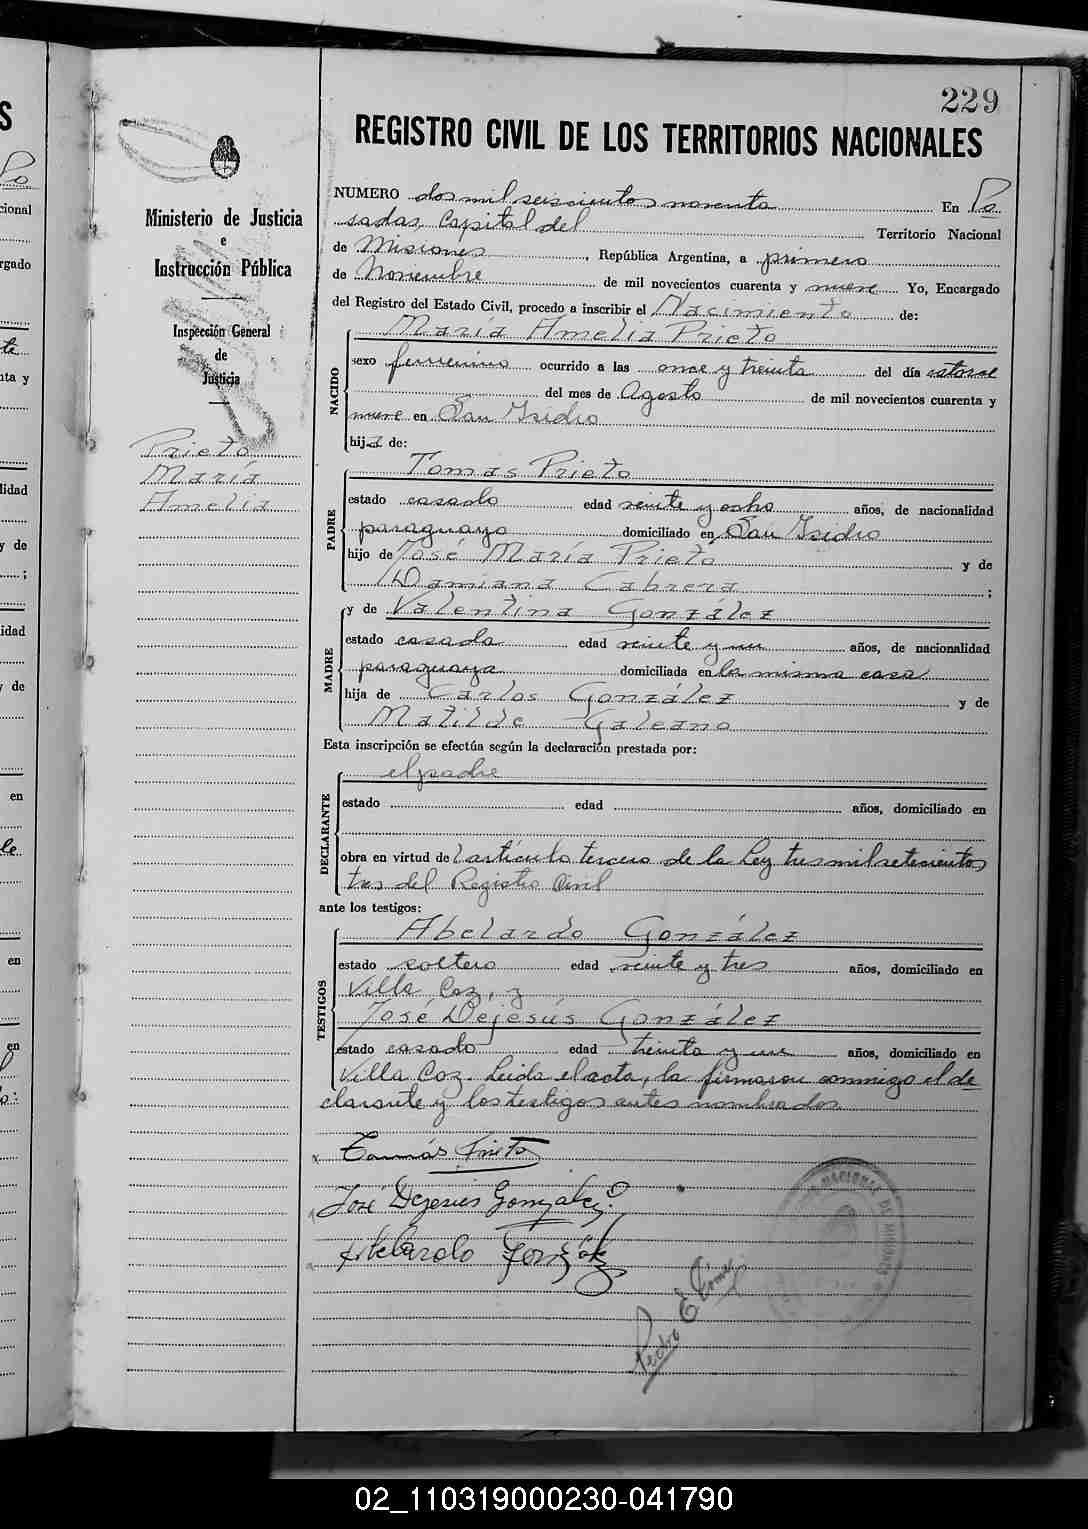 229
REGISTRO CIVIL DE LOS TERRITORIOS NACIONALES
Ministerio de Justicia
e
Instrucción Pública
Inspección General
de
Justicia
Prieto
María
Amelia
NUMERO dos mil seiscientos noventa En Po
sadas, Capital del Territorio Nacional
de Misiones, República Argentina, a primero
de Noviembre de mil novecientos cuarenta y nueve Yo, Encargado
del Registro del Estado Civil, procedo a inscribir el Nacimiento de:
NACIDO
María Amelia Prieto
sexo femenino ocurrido a las once y treinta del día catorce
del mes de Agosto de mil novecientos cuarenta y
nueve en San Isidro
hija de:
PADRE
Tomás Prieto
estado casado edad veinte y ocho años, de nacionalidad
paraguaya domiciliado en San Isidro
hijo de José María Prieto y de
Damiana Cabrera ;
MADRE
y de Valentina González
estado casada edad veinte y un años, de nacionalidad
paraguaya domiciliada en la misma casa
hija de Carlos González y de
Matilde Galeano
Esta inscripción se efectúa según la declaración prestada por:
DECLARANTE
el padre
estado edad años, domiciliado en
obra en virtud de l artículo tercero de la Ley tres mil setecientos
tres del Registro Civil
ante los testigos:
TESTIGOS
Abelardo González
estado soltero edad veinte y tres años, domiciliado en
Villa Coz, y
José Dejesús González
estado casado edad treinta y un años, domiciliado en
Villa Coz. Leida el acta, la firmaron conmigo el de
clarante y los testigos antes nombrados.
Tomás Prieto
José Dejesús Gonzalez
Abelardo González
Pedro E Gómez
02_110319000230-041790